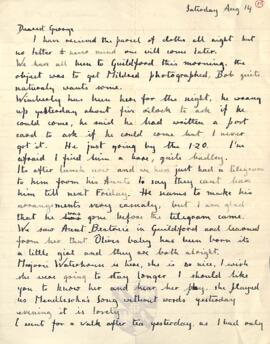 Saturday Aug 14
Dearest George
I have received the parcel of cloths all right but
no letter & never mind one will come later.
We have all been to Guildford this morning, the
object was to get Mildred photographed, Bob quite
naturaly wants some.
Wimberley has been here for the night, he rang
up yesterday about five oclock to ask if he
could come, he said he had written a post
card to ask if he could come but I never
got it. He just going by the 1.20. I'm
afraid I find him a bore, quite badly.
Its after lunch now and we have just had a telegram
to him from his Aunts to say they cant have
him till next Friday. He seems to make his
arrangements very casualy, but I am glad
that he gone before the telegram came.
We saw Aunt Beatrice in Guildford and learned
from her that Olives baby has been born its
a little girl and they are both alright.
Marjorie Waterhouse is here, she is so nice, I wish
she was going to stay longer I should like
you to know her and hear her play, she played
us Mendlesohn's Song without words yesterday
evening it is lovely
I went for a walk after tea yesterday, as I had only